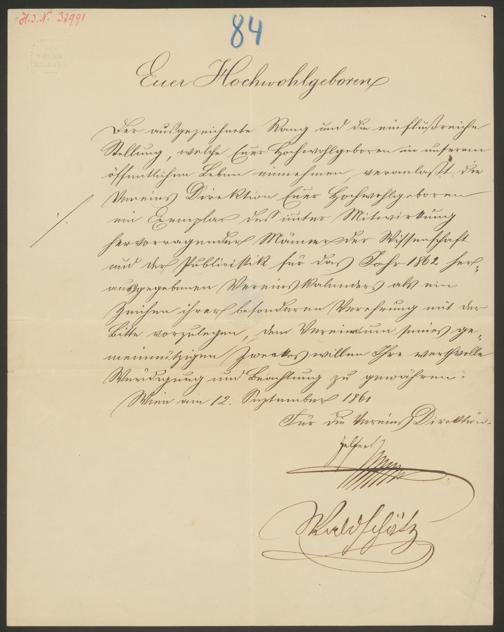 H.I.N. 37991
84
Euer Hochwohlgeboren
Der ausgezeichnete Rang und die einflußreiche
Stellung, welche Euer Hochwohlgeboren in unserem
öffentlichen Leben einnehmen, veranlaßt die
Vereins Direktion Euer Hochwohlgeboren
ein Exemplar des unter Mitwirkung
hervorragender Männer der Wissenschaft
und der Publicistik für das Jahr 1862 her-
ausgegebenen Vereins Kalenders als ein
Zeichen ihrer besonderen Verehrung mit der
Bitte vorzulegen, dem Verein um seines ge-
meinnützigen Zweckes willen Ihre werthvolle
Würdigung und Beachtung zu gewähren.
Wien am 12. September 1861
Für die Vereins Direktion.
Waldschütz